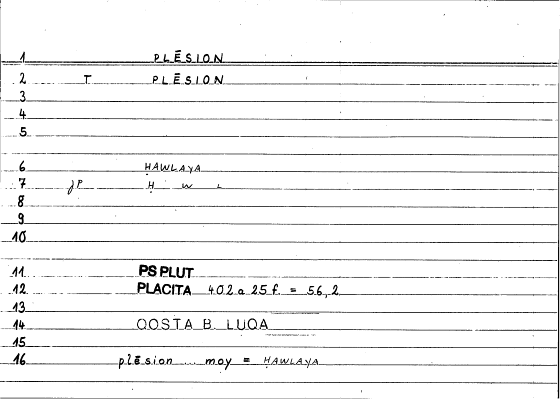 1 PLĒSION
2 T PLĒSION
3
4
5
6 ḤAWLAYA
7 jP Ḥ W L
8
9
10
11 PS PLUT
12 PLACITA 402a 25 f. = 56,2
13
14 QOSTA B. LUQA
15
16 plēsion ... moy = ḤAWLAYA